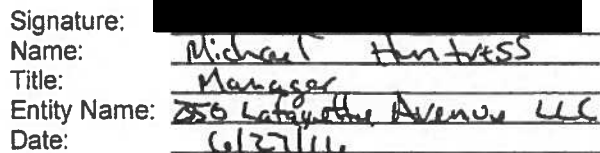 Signature:
Name: Michael Huntress
Title: Manager
Entity Name: 250 Lafayette Avenue LLC
Date: 6/27/16